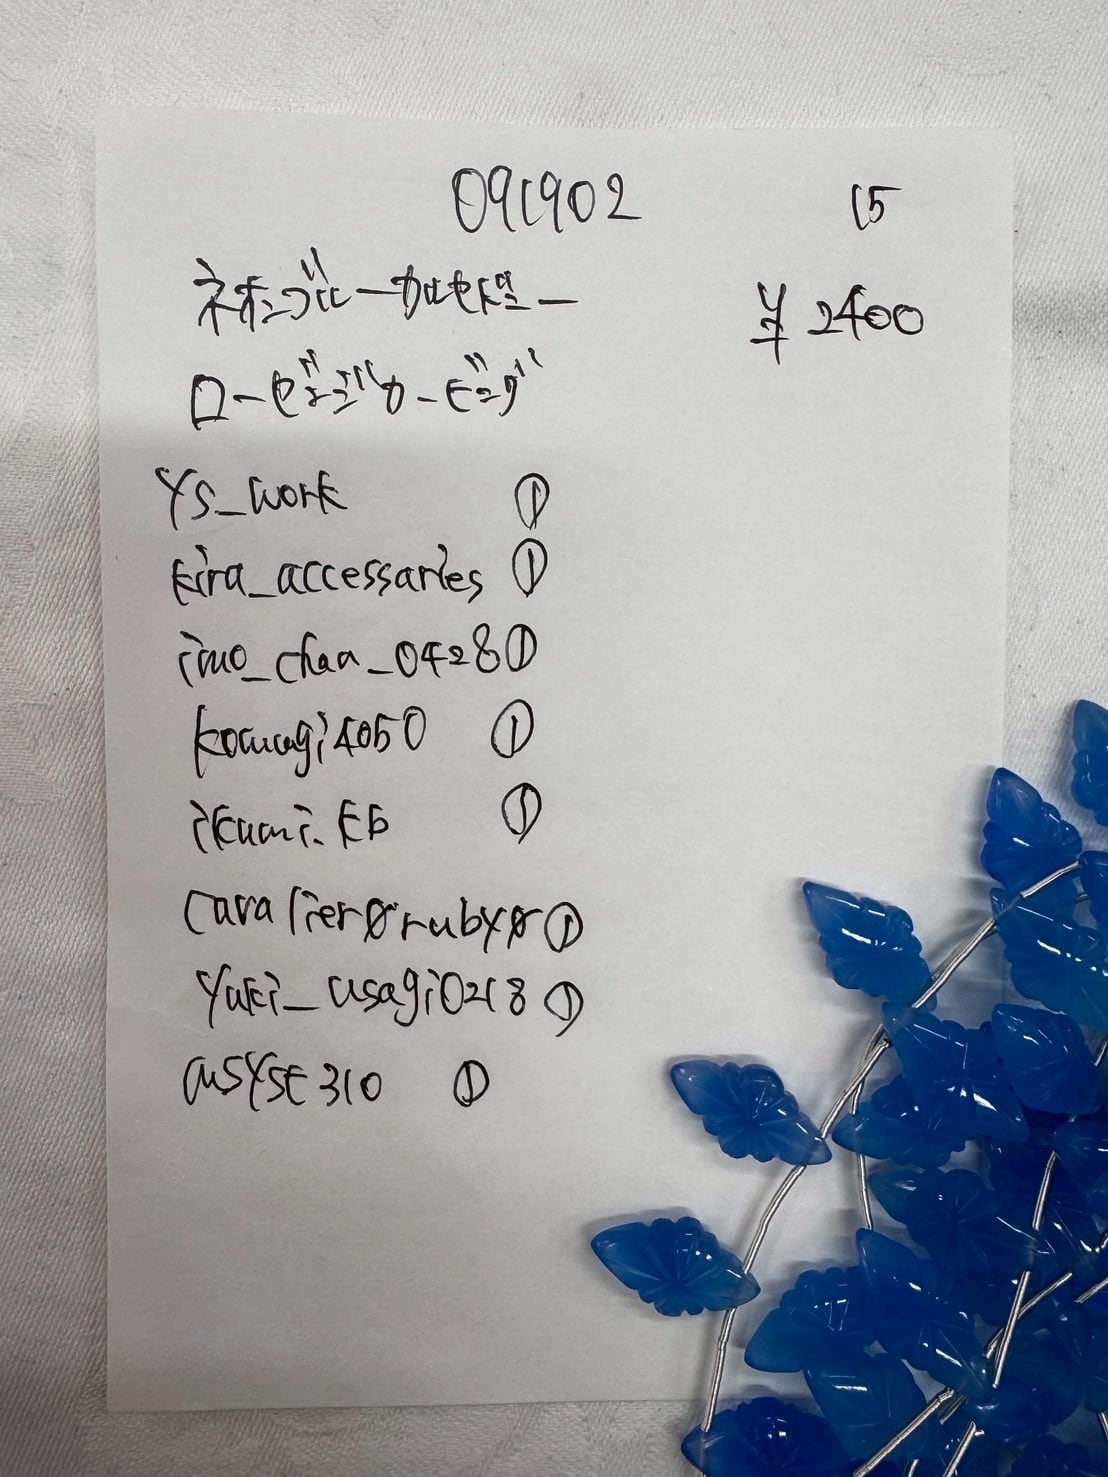 091902 15
ネオンブルーカルセドニー ¥2400
ローズカービング
ys_work ①
kira_accessaries ①
imo_chan_0428 ①
komugi4050 ①
ikumi.kb ①
cavalier0ruby0 ①
yuki_usagi0218 ①
msyst310 ①